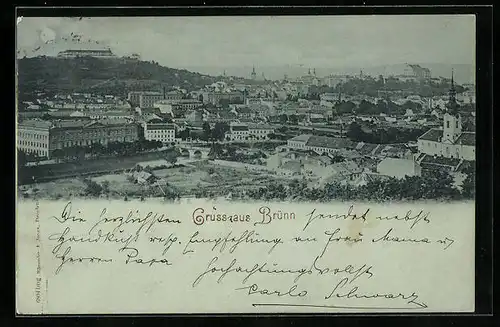 Gruss aus Brünn
Die herzlichsten sendet nebst
Handkuß resp. Empfehlung an Frau Mama u
Herrn Papa
Hochachtungsvollst
Carlo Schwarz